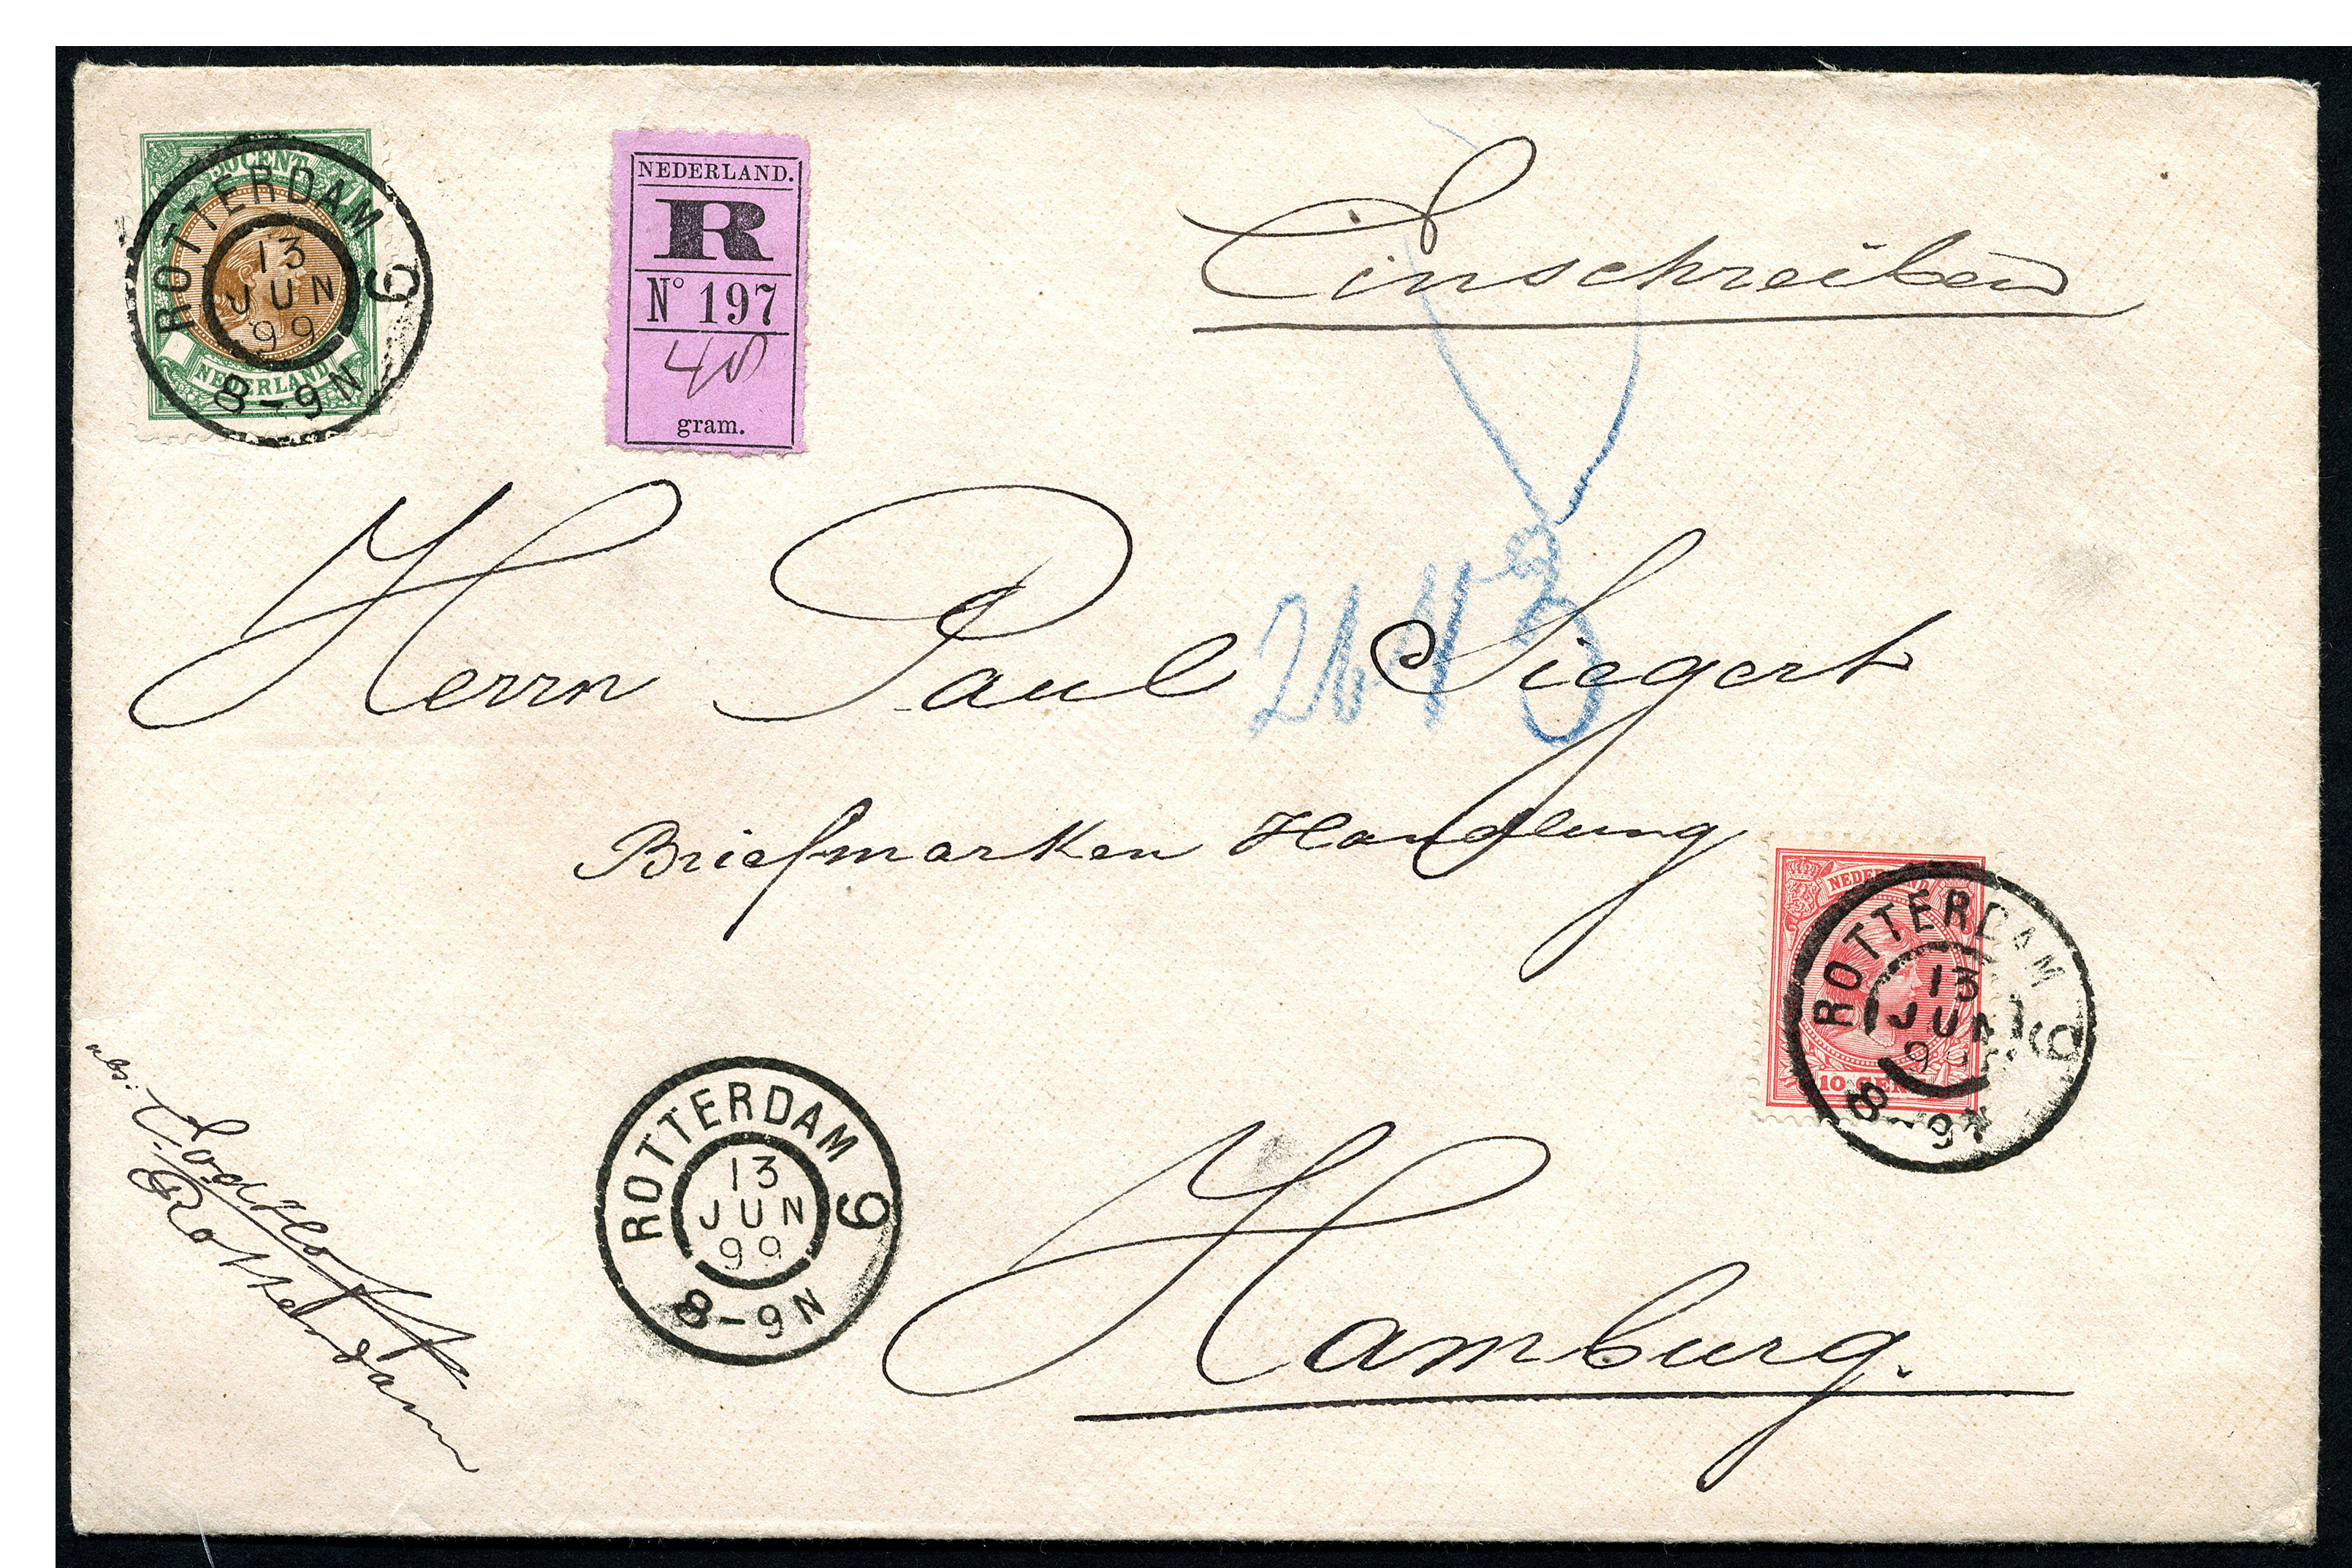 50 CENT
NEDERLAND
ROTTERDAM 9
13
JUN
99
8-9N
NEDERLAND.
R
No 197
40
gram.
Einschreiben
Herrn Paul Siegert
Briefmarken Handlung
NEDERLAND
10 CENT
ROTTERDAM 9
13
JUN
99
8-9N
ROTTERDAM 9
13
JUN
99
8-9N
Hamburg.
abs:
Rotterdam